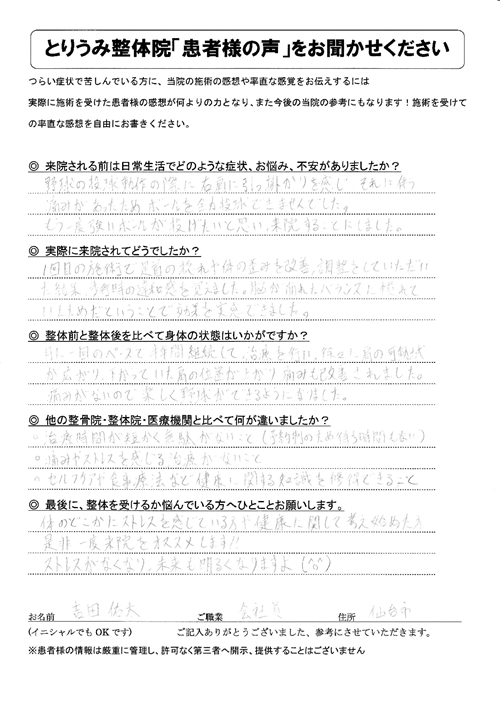 とりうみ整体院「患者様の声」をお聞かせください
つらい症状で苦しんでいる方に、当院の施術の感想や率直な感覚をお伝えするには
実際に施術を受けた患者様の感想が何よりの力となり、また今後の当院の参考にもなります！施術を受けて
の率直な感想を自由にお書きください。
◎ 来院される前は日常生活でどのような症状、お悩み、不安がありましたか？
野球の投球動作の際に右肩に引っ掛かりを感じ それに伴う
痛みがあったため ボールを全力投球できませんでした。
もう一度強いボールが投げたいと思い、来院することにしました。
◎ 実際に来院されてどうでしたか？
1回目の施術で 足首の 体の歪みを改善、調整をしていただい
た結果 歩行時の違和感を覚えました。脳が崩れたバランスに慣れて
いたためだということで効果を実感できました。
◎ 整体前と整体後を比べて身体の状態はいかがですか？
月に一回のペースで 年間継続して、治療を行い、徐々に肩の可動域
が広がり、下がっていた肩の位置が上がり 痛みも改善されました。
痛みがないので 楽しく野球ができるようになりました。
◎ 他の整骨院・整体院・医療機関と比べて何が違いましたか？
○ 治療時間が短かく無駄がないこと（予約制のため待ち時間もない）
○ 痛みやストレスを感じる治療がないこと
○ セルフケアや食事療法など健康に関する知識を修得できること
◎ 最後に、整体を受けるか悩んでいる方へひとことお願いします。
体のどこかにストレスを感じている方や健康に関して考え始めた方
是非一度来院をオススメします!!
ストレスがなくなり、未来も明るくなりますよ (^o^)
お名前 吉田 佑太 ご職業 会社員 住所 仙台市
(イニシャルでもOKです) ご記入ありがとうございました、参考にさせていただきます。
※患者様の情報は厳重に管理し、許可なく第三者へ開示、提供することはございません